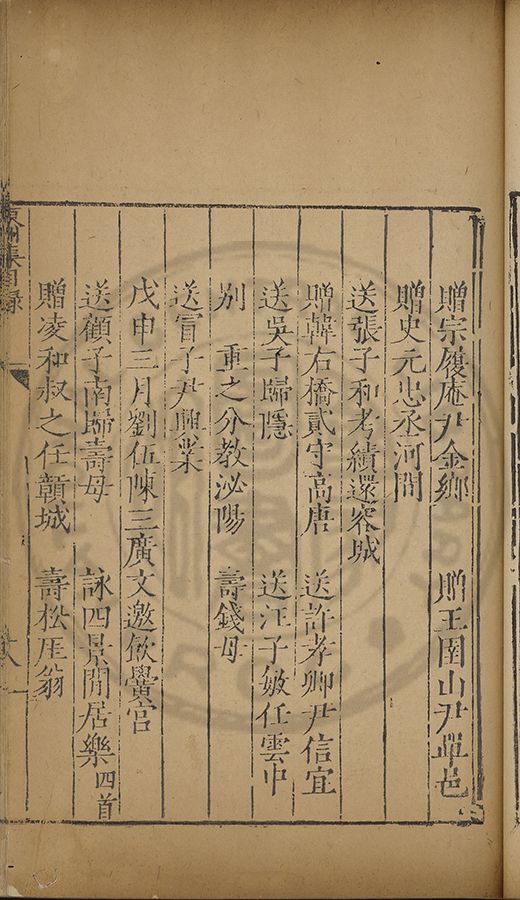 贈宗履庵尹金鄉 贈王圉山尹單邑
贈史元忠丞河間
送張子和考績還容城
贈韓右橋貳守高唐 送許孝卿尹信宜
送吳子歸隱 送汪子敏任雲中
別 重之分教泌陽 壽錢母
送冒子尹興業
戊申三月劉伍陳三廣文邀飲黌宮
送顧子南歸壽母 詠四景閒居樂四首
贈凌和叔之任贛城 壽松厓翁
集目錄